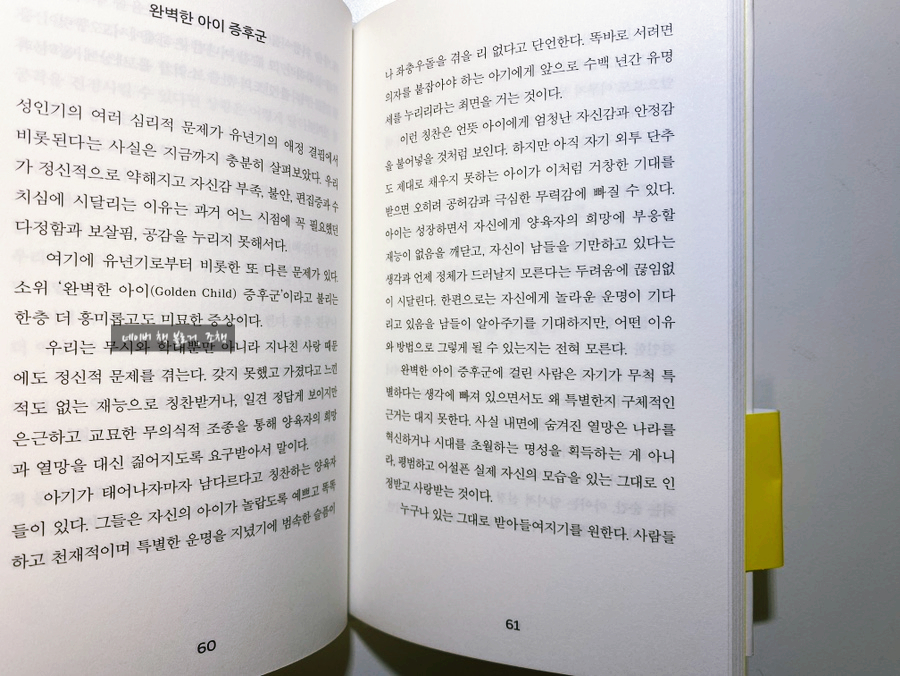 완벽한 아이 증후군
성인기의 여러 심리적 문제가 유년기의 애정 결핍에서
비롯된다는 사실은 지금까지 충분히 살펴보았다. 우리
가 정신적으로 약해지고 자신감 부족, 불안, 편집증과 수
치심에 시달리는 이유는 과거 어느 시점에 꼭 필요했던
다정함과 보살핌, 공감을 누리지 못해서다.
여기에 유년기로부터 비롯한 또 다른 문제가 있다.
소위 ‘완벽한 아이(Golden Child) 증후군’이라고 불리는
한층 더 흥미롭고도 미묘한 증상이다.
우리는 무시와 학대뿐만 아니라 지나친 사랑 때문
에도 정신적 문제를 겪는다. 갖지 못했고 가졌다고 느낀
적도 없는 재능으로 칭찬받거나, 일견 정답게 보이지만
은근하고 교묘한 무의식적 조종을 통해 양육자의 희망
과 열망을 대신 짊어지도록 요구받아서 말이다.
아기가 태어나자마자 남다르다고 칭찬하는 양육자
들이 있다. 그들은 자신의 아이가 놀랍도록 예쁘고 똑똑
하고 천재적이며 특별한 운명을 지녔기에 범속한 슬픔이
네이버 책 블로거, 조챙
60
나 좌충우돌을 겪을 리 없다고 단언한다. 똑바로 서려면
의자를 붙잡아야 하는 아기에게 앞으로 수백 년간 유명
세를 누리리라는 최면을 거는 것이다.
이런 칭찬은 언뜻 아이에게 엄청난 자신감과 안정감
을 불어넣을 것처럼 보인다. 하지만 아직 자기 외투 단추
도 제대로 채우지 못하는 아이가 이처럼 거창한 기대를
받으면 오히려 공허감과 극심한 무력감에 빠질 수 있다.
아이는 성장하면서 자신에게 양육자의 희망에 부응할
재능이 없음을 깨닫고, 자신이 남들을 기만하고 있다는
생각과 언제 정체가 드러날지 모른다는 두려움에 끊임없
이 시달린다. 한편으로는 자신에게 놀라운 운명이 기다
리고 있음을 남들이 알아주기를 기대하지만, 어떤 이유
와 방법으로 그렇게 될 수 있는지는 전혀 모른다.
완벽한 아이 증후군에 걸린 사람은 자기가 무척 특
별하다는 생각에 빠져 있으면서도 왜 특별한지 구체적인
근거는 대지 못한다. 사실 내면에 숨겨진 열망은 나라를
혁신하거나 시대를 초월하는 명성을 획득하는 게 아니
라, 평범하고 어설픈 실제 자신의 모습을 있는 그대로 인
정받고 사랑받는 것이다.
누구나 있는 그대로 받아들여지기를 원한다. 사람들
61